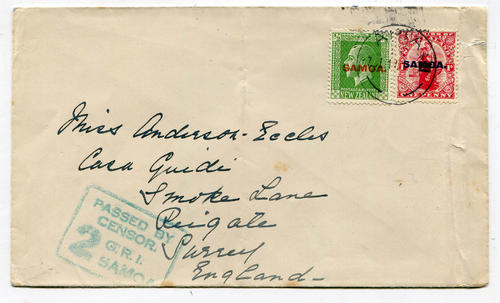 SAMOA.
POSTAGE & REVENUE
NEW ZEALAND
SAMOA.
PENNY
Miss Anderson-Eccles
Casa Guidi
Smoke Lane
Reigate
Surrey
England
PASSED BY
CENSOR.
2 G.R.I.
SAMOA